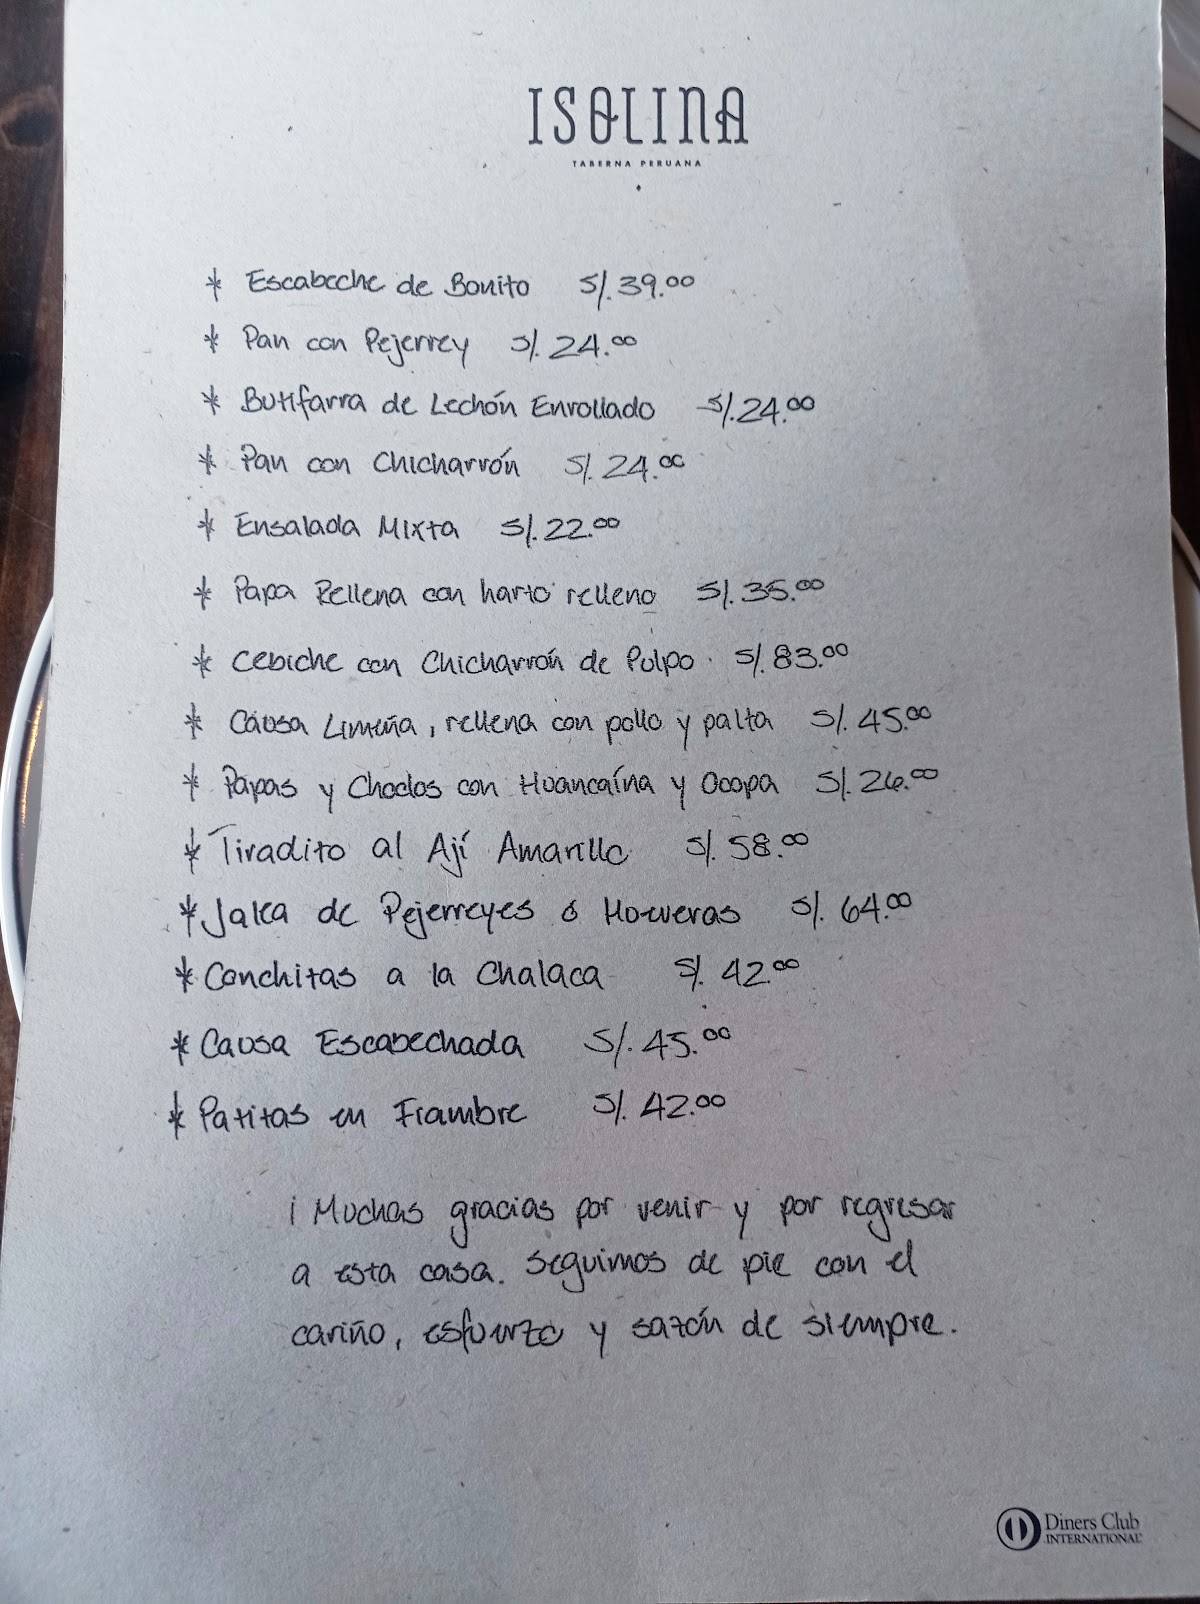 ISOLINA
TABERNA PERUANA
* Escabeche de Bonito S/. 39.00
* Pan con Pejerrey S/. 24.00
* Butifarra de Lechón Enrollado S/. 24.00
* Pan con Chicharrón S/. 24.00
* Ensalada Mixta S/. 22.00
* Papa Rellena con harto relleno S/. 35.00
* Cebiche con Chicharrón de Pulpo. S/. 83.00
* Causa Limeña, rellena con pollo y palta S/. 45.00
* Papas y Choclos con Huancaína y Ocopa S/. 26.00
* Tiradito al Ají Amarillo S/. 58.00
* Jalea de Pejerreyes ó Hueveras S/. 64.00
* Conchitas a la Chalaca S/. 42.00
* Causa Escabechada S/. 45.00
* Patitas en Fiambre S/. 42.00
¡Muchas gracias por venir y por regresar
a esta casa. Seguimos de pie con el
cariño, esfuerzo y sazón de siempre.
Diners Club
INTERNATIONAL